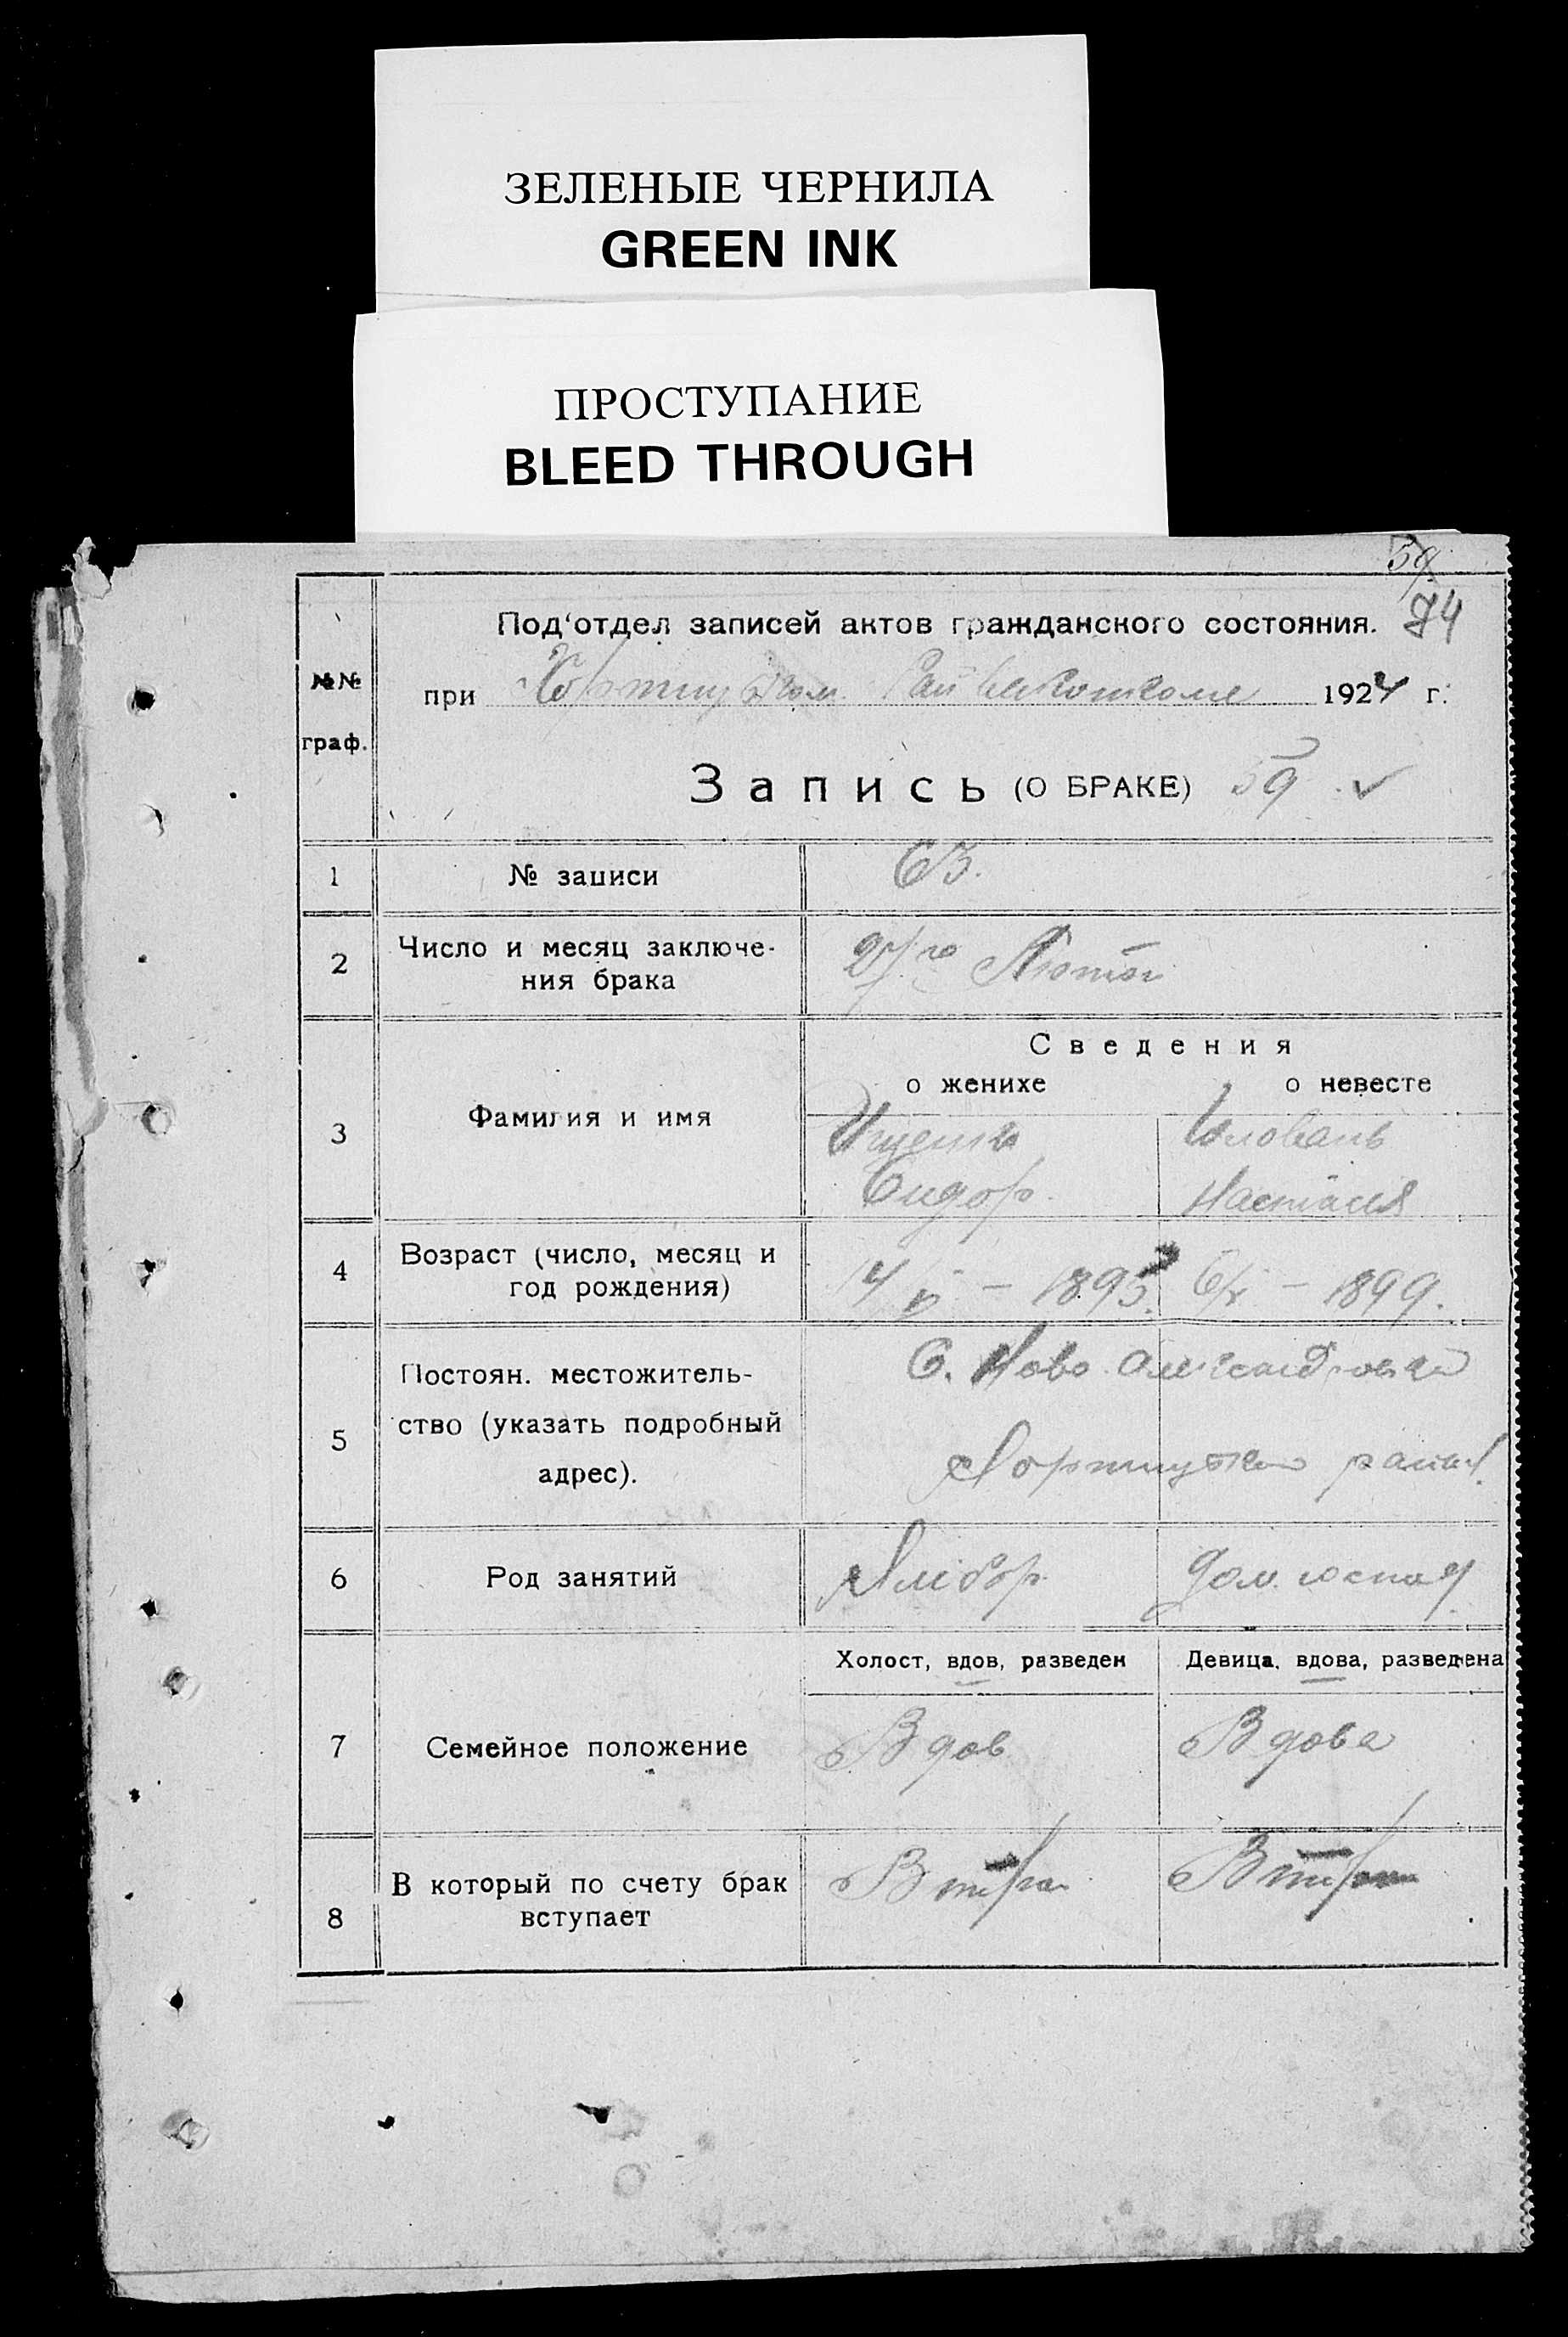 ЗЕЛЕНЫЕ ЧЕРНИЛА
GREEN INK
ПРОСТУПАНИЕ
BLEED THROUGH
59
74
Под'отдел записей актов гражданского состояния.
№№
граф.
при 1924 г.
Запись (О БРАКЕ) 59
1 № записи 63.
2 Число и месяц заключе-
ния брака
27/го Лютого
Сведения
о женихе о невесте
3 Фамилия и имя
Сидор Настасия
4 Возраст (число, месяц и
год рождения)
14/ – 1895 6/х – 1899.
5 Постоян. местожитель-
ство (указать подробный
адрес).
С. Ново
6 Род занятий
Хлібор. Дом. господ
Холост, вдов, разведен Девица, вдова, разведена
7 Семейное положение
Вдов Вдова
8 В который по счету брак
вступает